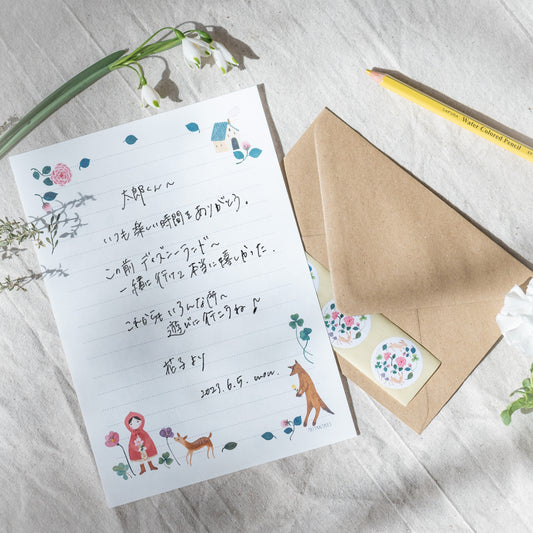 太郎くんへ
いつも楽しい時間をありがとう。
この前ディズニーランドへ
一緒に行けて本当に嬉しかった。
これからもいろんな所へ
遊びに行こうね♪
花子より
2023.6.5. mon.
SAKURA Water Colored Pencil